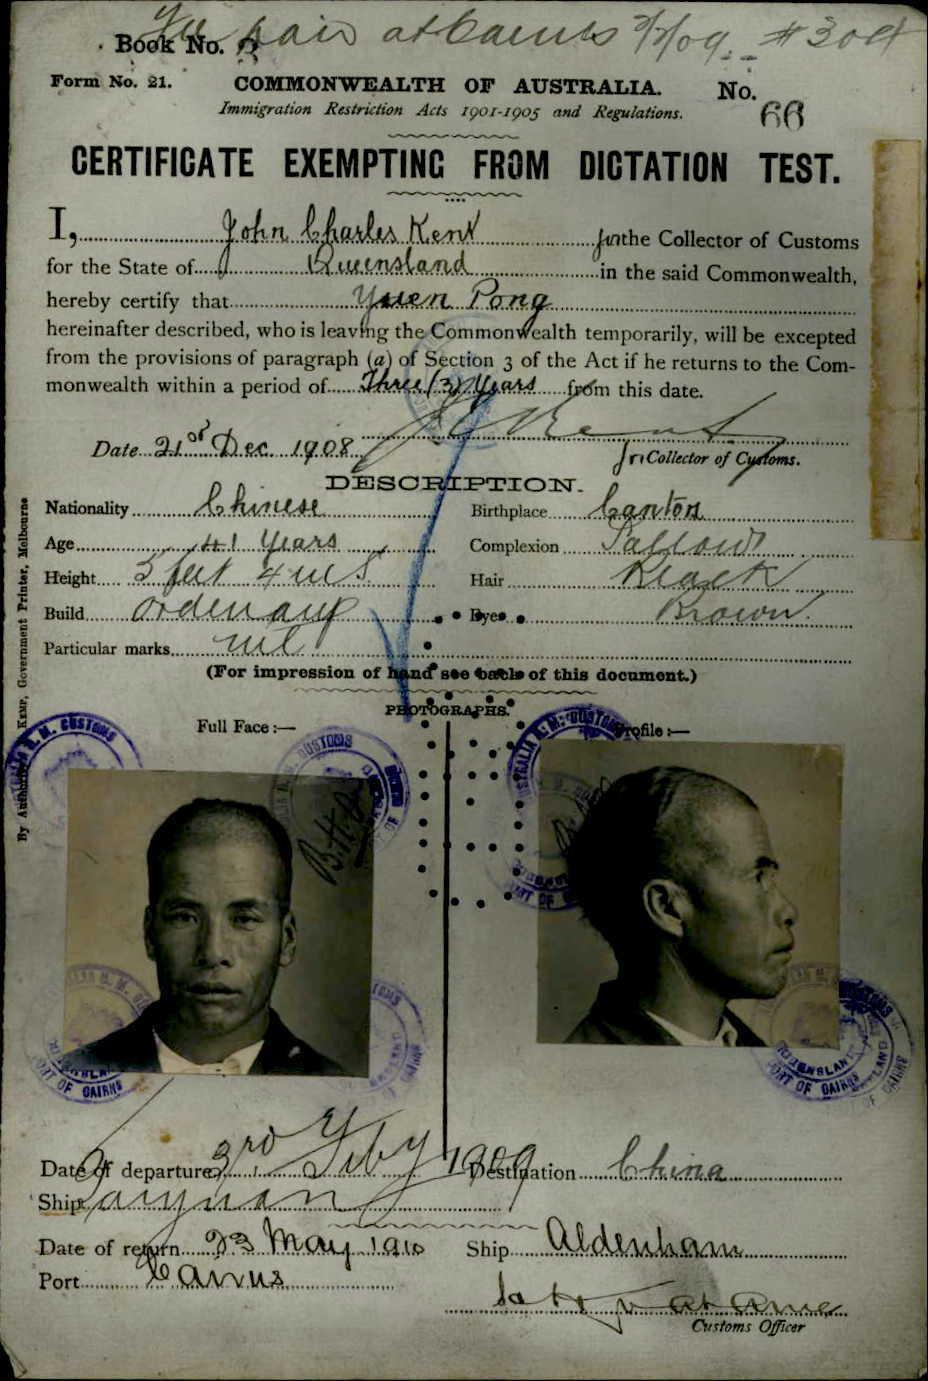 Fee paid at Cairns 3/2/09. #304
Book No. 8
Form No. 21. COMMONWEALTH OF AUSTRALIA. No. 66
Immigration Restriction Acts 1901-1905 and Regulations.
CERTIFICATE EXEMPTING FROM DICTATION TEST.
I, John Charles Kent for the Collector of Customs
for the State of Queensland in the said Commonwealth,
hereby certify that Yuen Pong
hereinafter described, who is leaving the Commonwealth temporarily, will be excepted
from the provisions of paragraph (a) of Section 3 of the Act if he returns to the Com-
monwealth within a period of Three (3) Years from this date.
J C Kent
Date 21st Dec. 1908 for Collector of Customs.
DESCRIPTION.
Nationality Chinese Birthplace Canton
Age 41 Years Complexion Sallow
Height 5 feet 4 ins Hair Black
Build Ordinary Eyes Brown.
Particular marks nil
(For impression of hand see back of this document.)
PHOTOGRAPHS.
Full Face :— Profile :—
Date of departure 3rd Feby 1909 Destination China
Ship Taiyuan
Date of return 23 May 1910 Ship Aldenham
Port Cairns
Customs Officer
By Authority: KEMP, Government Printer, Melbourne
CUSTOMS
QUEENSLAND
PORT OF CAIRNS